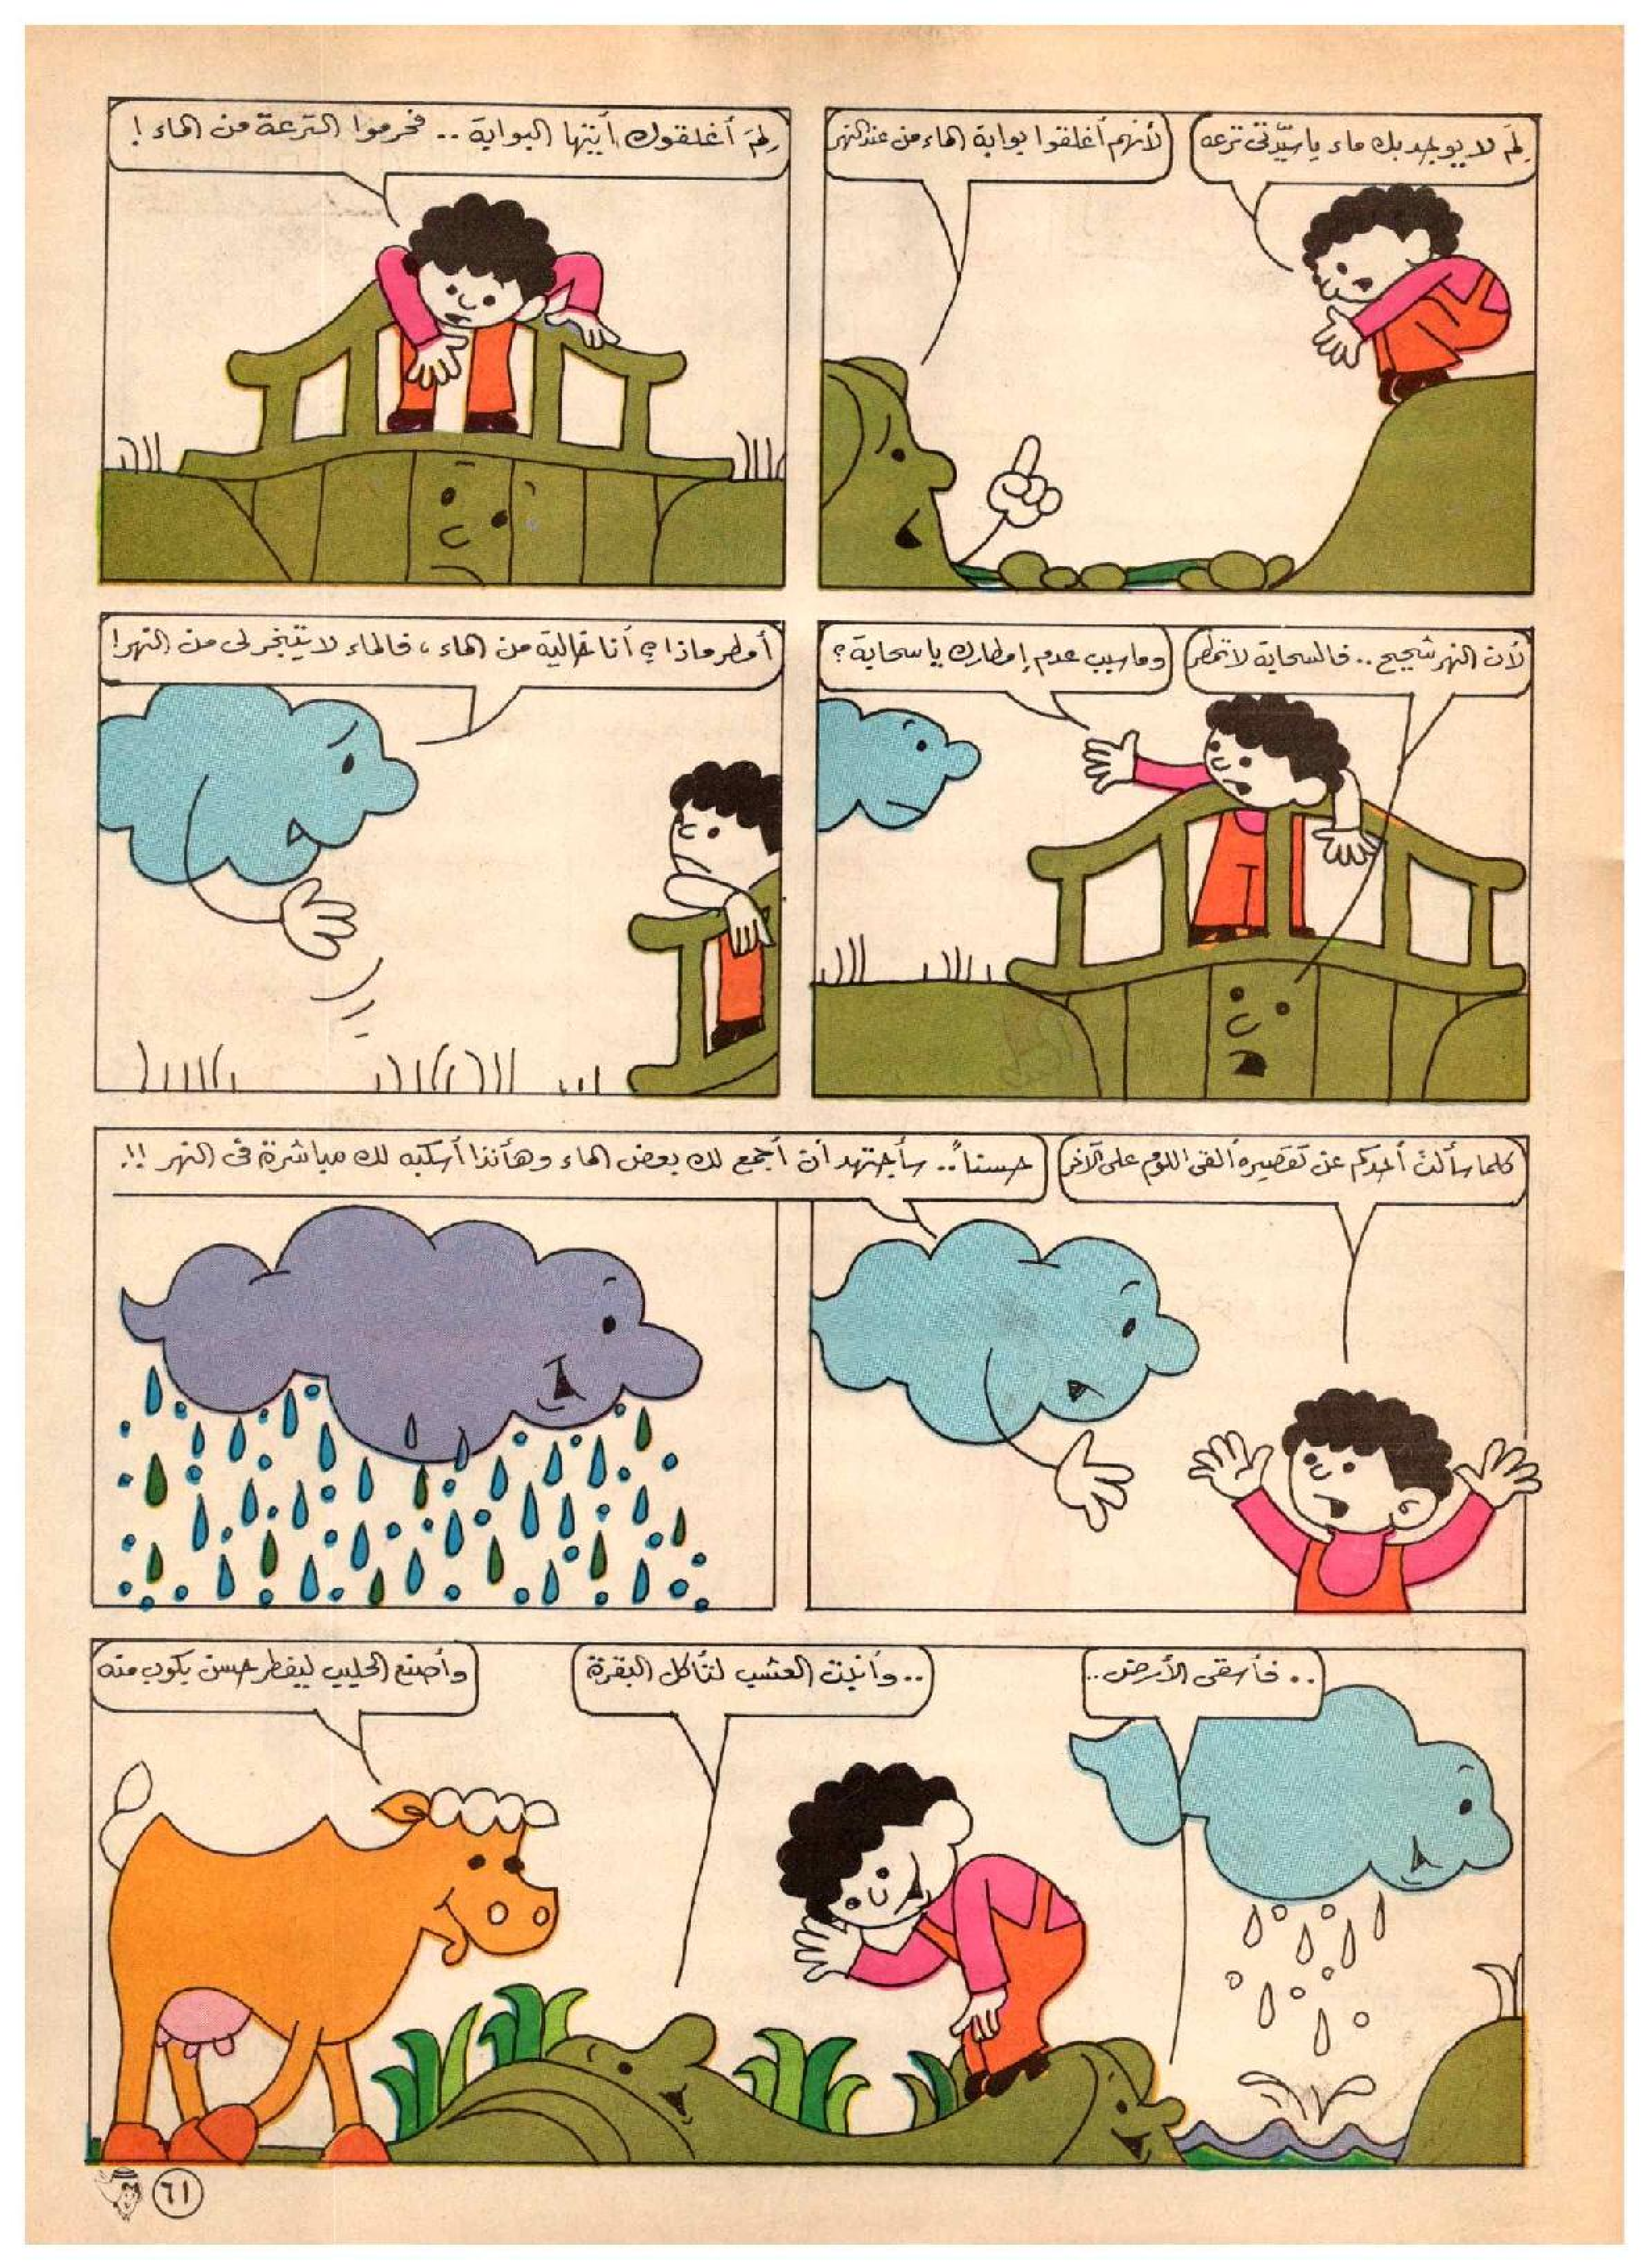 لِمَ لا يوجد بك ماء يا سيّدتى ترعه
لأنهم أغلقوا بوابة الماء من عند النهر
لِمَ أغلقوك أيتها البوابة .. فحرموا الترعة من الماء !
لأن النهر شحيح .. فالسحابة لا تمطر
وما سبب عدم إمطارك يا سحابة ؟
أمطر ماذا ؟ أنا خالية من الماء ، فالماء لا يتبخر لى من النهر !
كلما سألت أحدكم عن تقصيره ألقى اللوم على الآخر
حسناً .. سأجتهد أن أجمع لك بعض الماء وهأنذا أسكبه لك مباشرة فى النهر !!
.. فأسقى الأرض ..
.. وأنبت العشب لتأكل البقرة
وأصنع الحليب ليفطر حسن بكوب منه
٦١